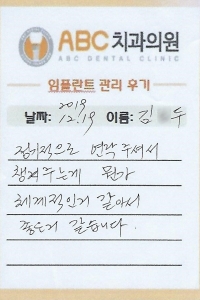 ABC 치과의원
ABC DENTAL CLINIC
임플란트 관리 후기
2019
날짜: 12.19 이름: 김 두
정기적으로 연락 주셔서
챙겨주는게 뭔가
체계적인거 같아서
좋은거 같습니다.